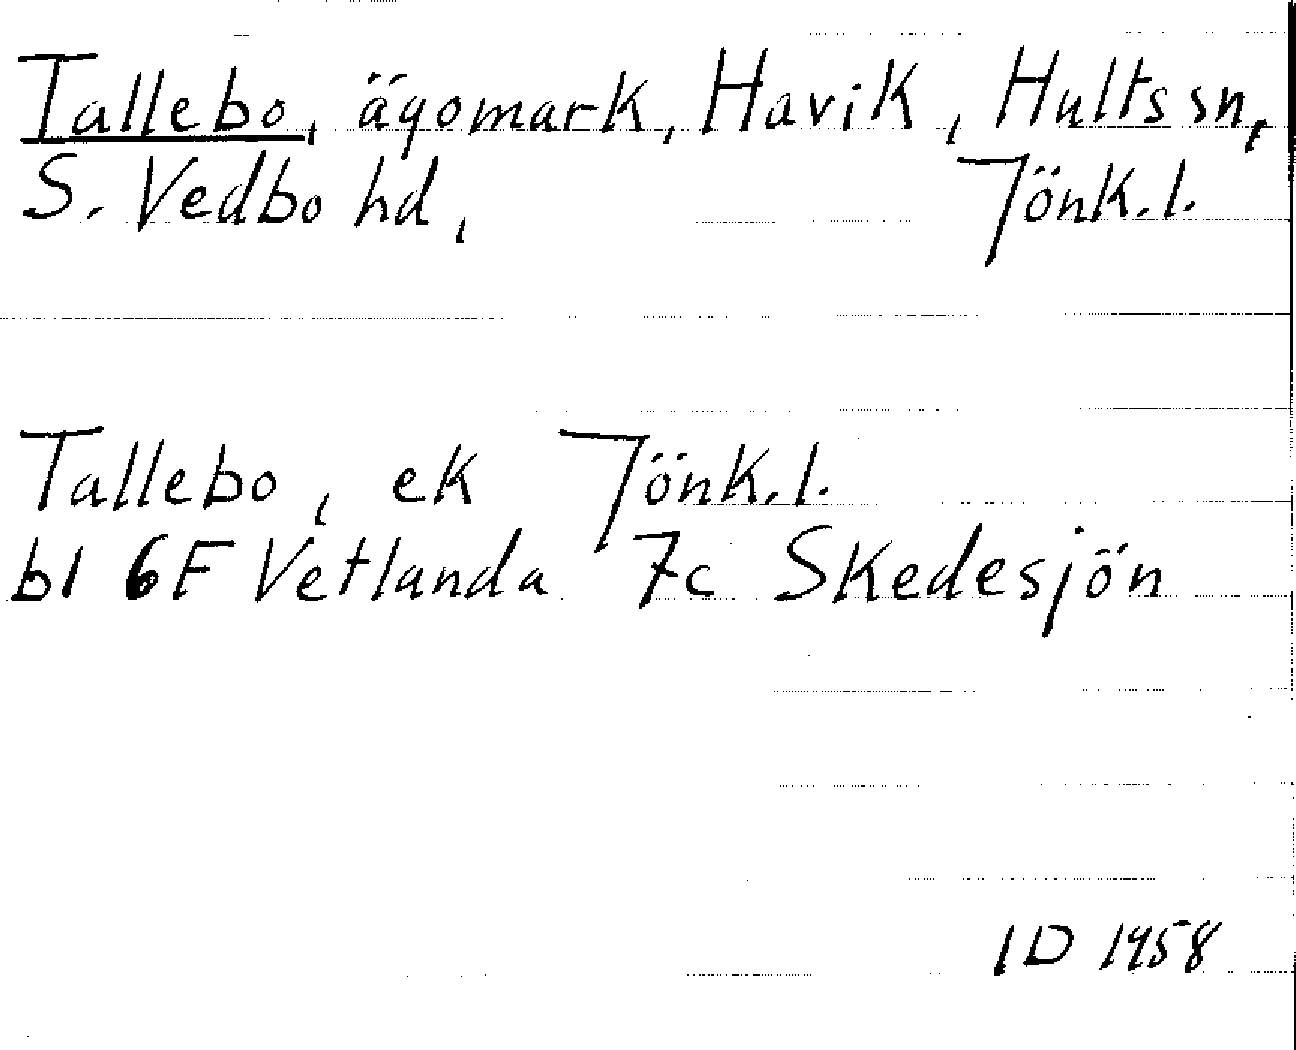 Tallebo, ägomark, Havik, Hults sn,
S. Vedbo hd, Jönk. l.
Tallebo, ek Jönk. l.
bl 6F Vetlanda 7c Skedesjön
ID 1958